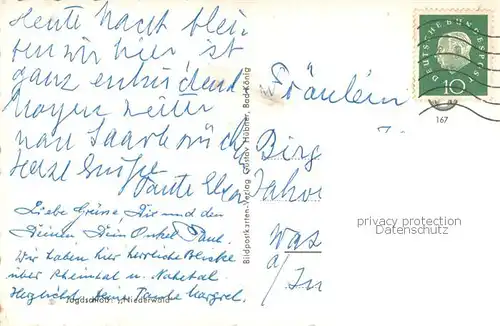 Heute Nacht blei-
ben wir hier ist
ganz entzückend
Morgen weiter
nach Saarbrück
Herzl Grüße
Tante Elsa
Liebe Grüsse Dir und den
Deinen, Dein Onkel Paul.
Wir haben hier herrliche Blicke
über Rheintal u. Nahetal.
Herzlichst Deine Tante Margret.
Jagdschloß Niederwald
Bildpostkarten-Verlag Gustav Hübner, Bad König
DEUTSCHE BUNDESPOST
10
167
Fräulein
Birg
Jahn
Was
a/
privacy protection
Datenschutz